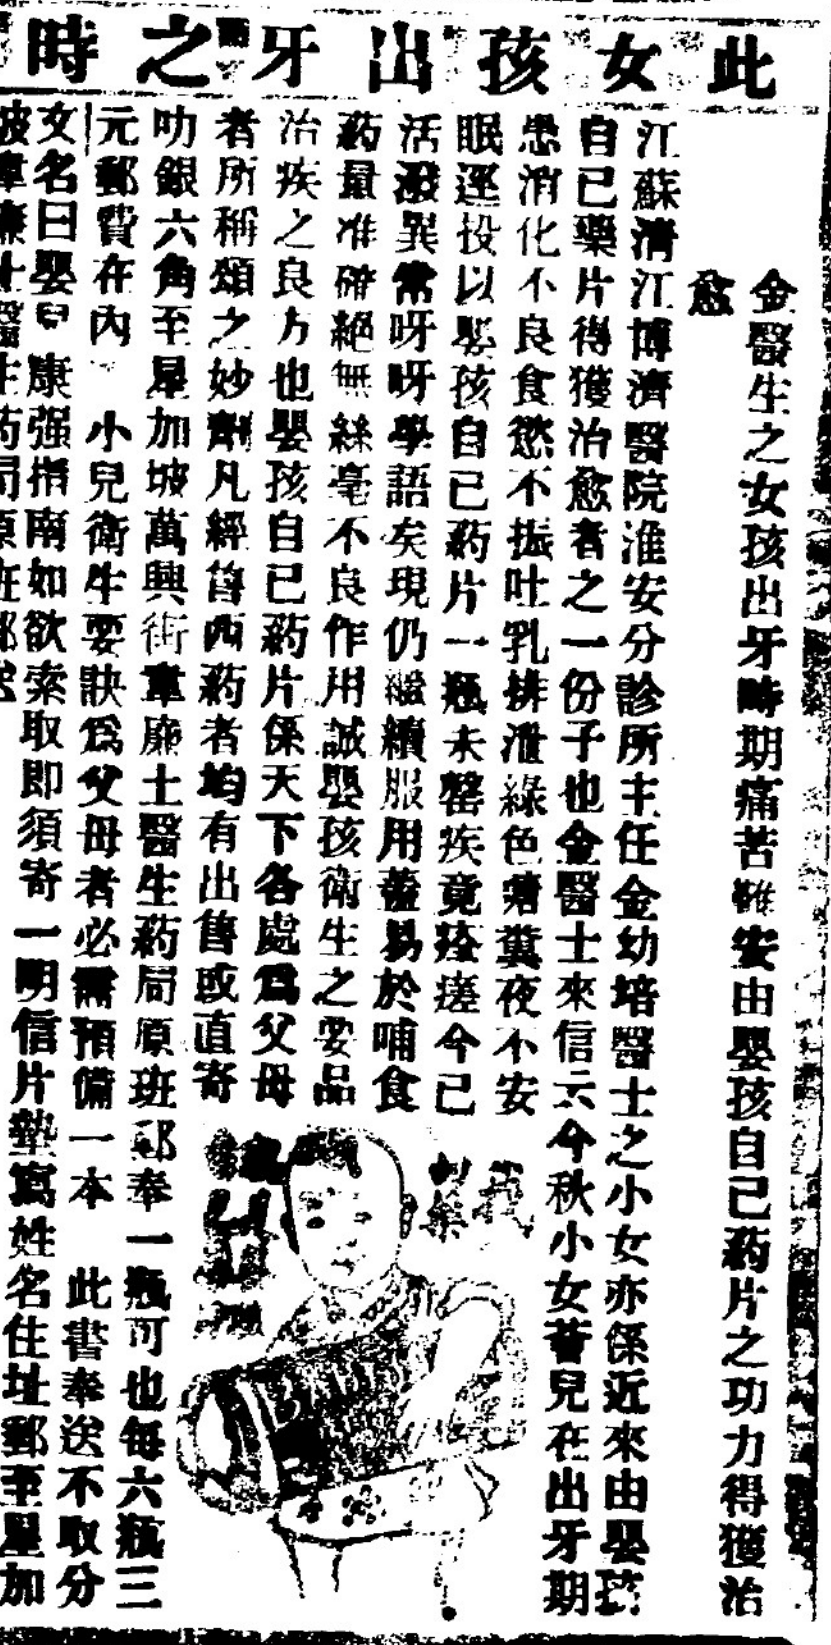 此女孩出牙之時
金醫生之女孩出牙時期痛苦難安由嬰孩自己葯片之功力得獲治
愈
江蘇清江博濟醫院淮安分診所主任金幼培醫士之小女亦係近來由嬰孩
自己藥片得獲治愈者之一份子也金醫士來信云今秋小女薈兒在出牙期
患消化不良食慾不振吐乳排泄綠色糞夜不安
眠逕投以嬰孩自己葯片一瓶未罄疾竟痊瘥今已
活潑異常呀呀學語矣現仍繼續服用蓋易於哺食
葯量准確絕無絲毫不良作用誠嬰孩衛生之要品
治疾之良方也嬰孩自己葯片係天下各處爲父母
者所稱頌之妙劑凡經售西葯者均有出售或直寄
叻銀六角至星加坡萬興街韋廉士醫生葯局原班郵奉一瓶可也每六瓶三
元郵費在內 小兒衛生要訣爲父母者必需預備一本 此書奉送不取分
文名曰嬰兒康强指南如欲索取即須寄一明信片塾寫姓名住址郵至星加
坡韋廉士醫生葯局原班郵送